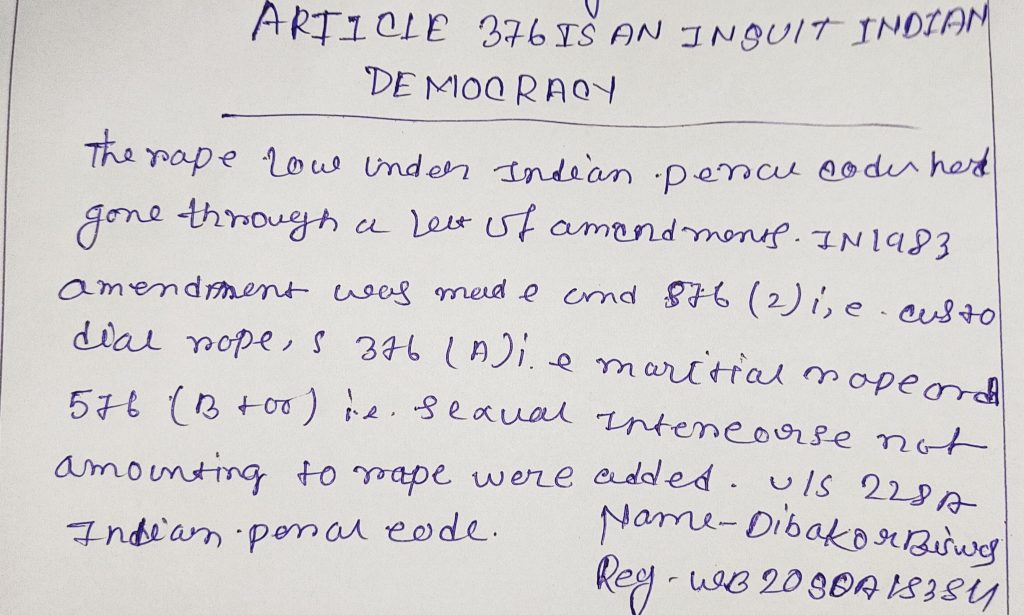 ARTICLE 376 IS AN INSUIT INDIAN
DEMOCRACY
The rape low under Indian penal code had
gone through a lot of amendments. IN 1983
amendment was made and S76 (2) i,e. custo
dial rape, s 376 (A) i.e maritial rape and
576 (B to D) i.e. sexual Intercourse not
amounting to rape were added. u/s 228A
Indian penal code.
Name - Dibakor Biswas
Reg - WB